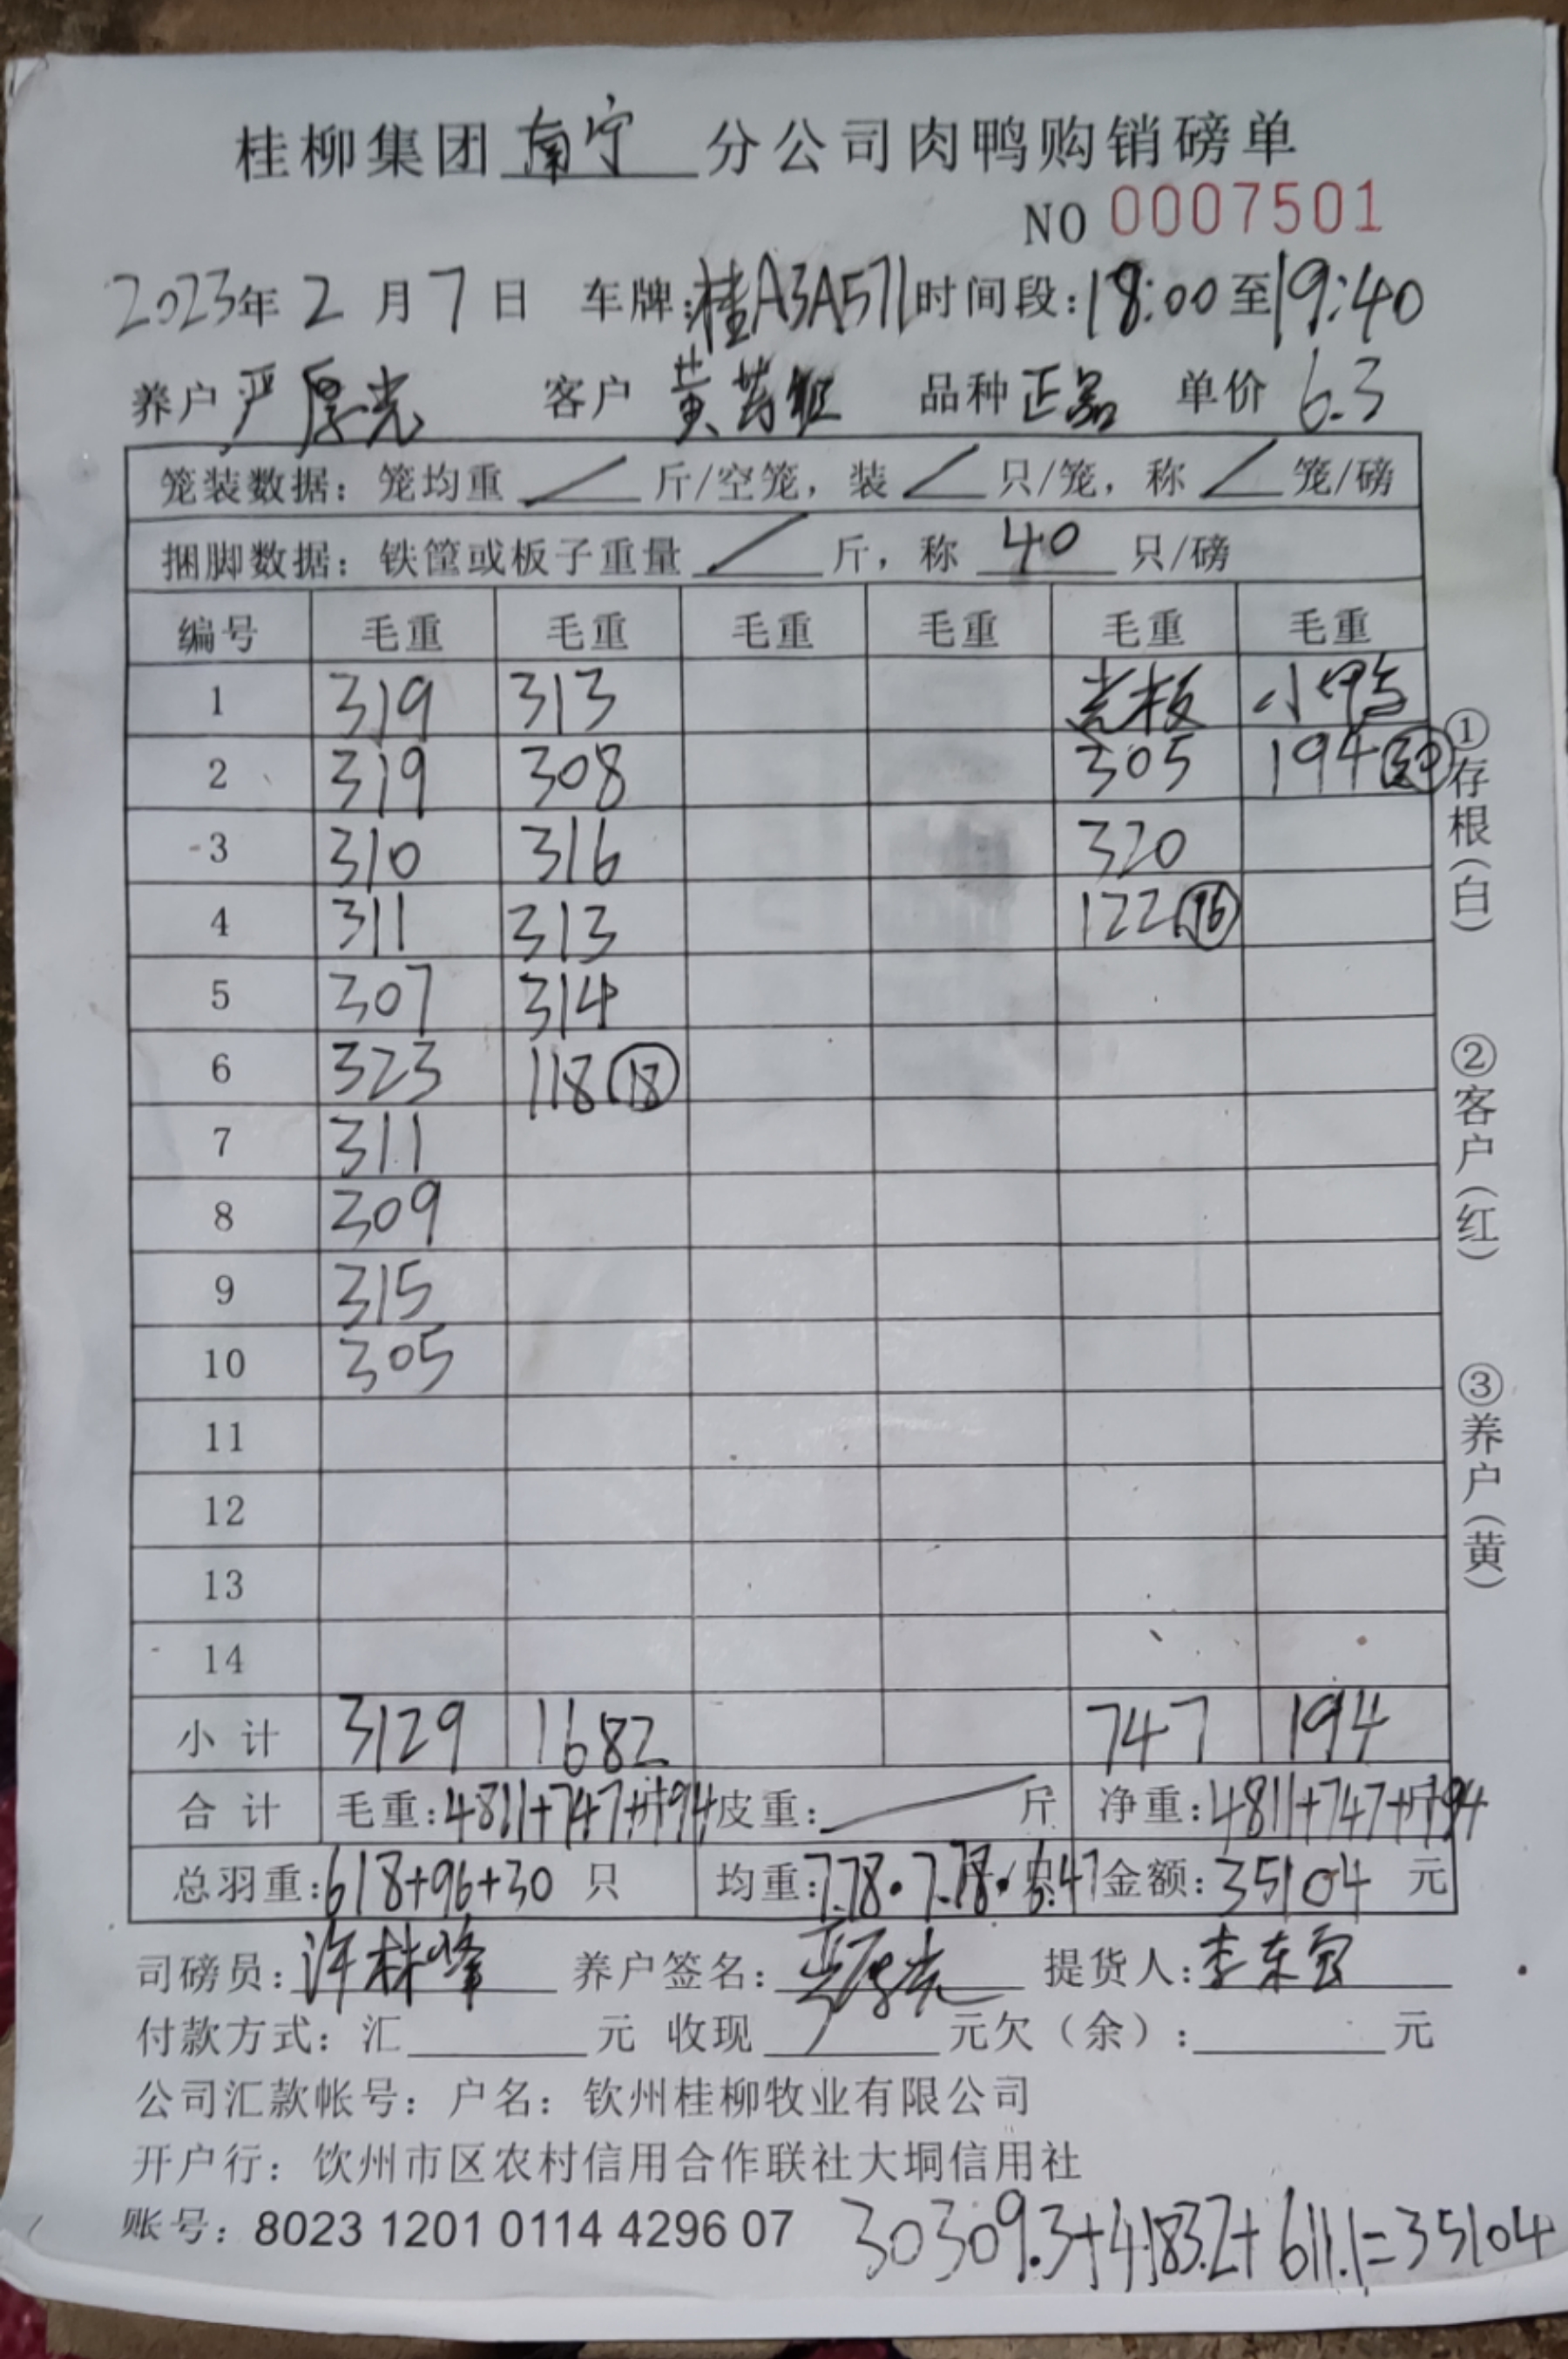 桂柳集团南宁分公司肉鸭购销磅单
NO 0007501
2023年2月7日 车牌:桂A3A571时间段:18:00至19:40
养户严厚光 客户 黄 品种正品 单价 6.3
笼装数据：笼均重 / 斤/空笼，装 / 只/笼，称 / 笼/磅
捆脚数据：铁筐或板子重量 / 斤，称 40 只/磅
编号 毛重 毛重 毛重 毛重 毛重 毛重
1 319 313 光板 小鸭
2 319 308 305 194 30
3 310 316 320
4 311 313 122 16
5 307 314
6 323 118 18
7 311
8 309
9 315
10 305
11
12
13
14
小计 3129 1682 747 194
合计 毛重:4811+747+194 皮重: / 斤 净重:4811+747+194
总羽重:618+96+30 只 均重:7.78·7.78·6.47 金额:35104 元
司磅员:许林峰 养户签名:严厚光 提货人:李东
付款方式：汇 元 收现 / 元欠（余）: 元
公司汇款帐号：户名：钦州桂柳牧业有限公司
开户行：饮州市区农村信用合作联社大垌信用社
账号：8023 1201 0114 4296 07
30309.3+4183.2+611.1=35104
①存根（白）
②客户（红）
③养户（黄）